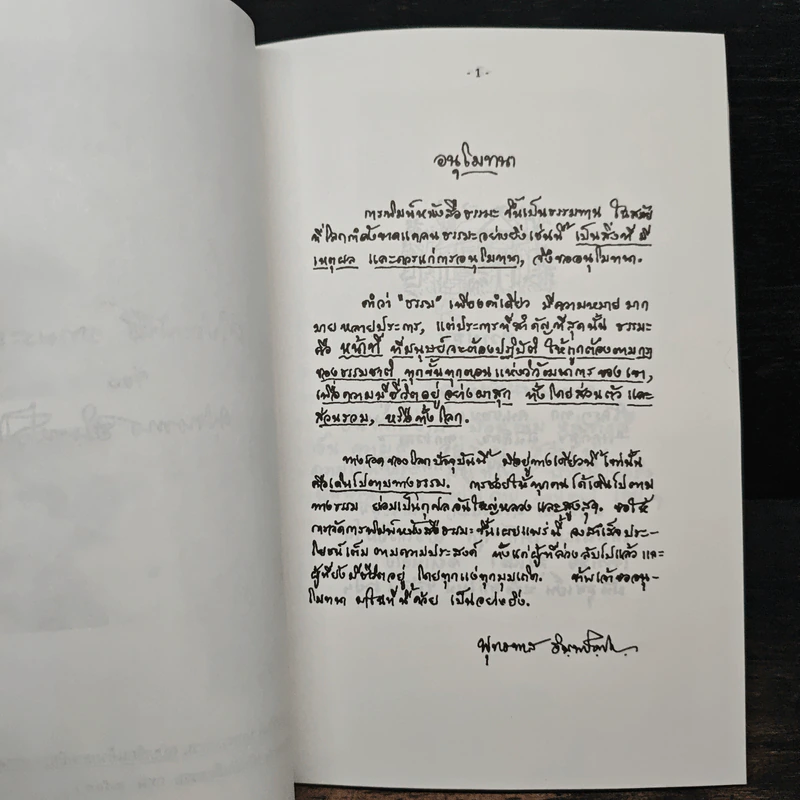 - 1 -
อนุโมทนา
การพิมพ์หนังสือธรรมะ ขึ้นเป็นธรรมทาน ในสมัย
ที่โลกกำลังขาดแคลนธรรมะอย่างยิ่งเช่นนี้ เป็นสิ่งที่ มี
เหตุผล และควรแก่การอนุโมทนา, จึงขออนุโมทนา.
คำว่า "ธรรม" เพียงคำเดียว มีความหมาย มาก
มายหลายประการ, แต่ประการที่สำคัญที่สุดนั้น ธรรมะ
คือ หน้าที่ ที่มนุษย์จะต้องปฏิบัติ ให้ถูกต้องตามกฎ
ของธรรมชาติ ทุกขั้นทุกตอนแห่งวิวัฒนาการ ของเขา,
เพื่อความมีชีวิตอยู่ อย่างผาสุก ทั้งโดยส่วนตัว และ
ส่วนรวม, หรือทั้งโลก.
ทางรอด ของโลกปัจจุบันนี้ มีอยู่ทางเดียวนี้ เท่านั้น
คือเดินไปตามทางธรรม. การช่วยให้ทุกคนได้เดินไปตาม
ทางธรรม ย่อมเป็นกุศลอันใหญ่หลวง และสูงสุด. ขอให้
การจัดการพิมพ์หนังสือธรรมะ ขึ้นเผยแพร่นี้ จงสำเร็จประ-
โยชน์เต็ม ตามความประสงค์ ทั้งแก่ผู้ที่ล่วงลับไปแล้ว และ
ผู้ที่ยังมีชีวิตอยู่ โดยทุกแง่ทุกมุมเถิด. ข้าพเจ้าขออนุ-
โมทนา มาในที่นี้ด้วย เป็นอย่างยิ่ง.
พุทธทาส อินฺทปญฺโญ